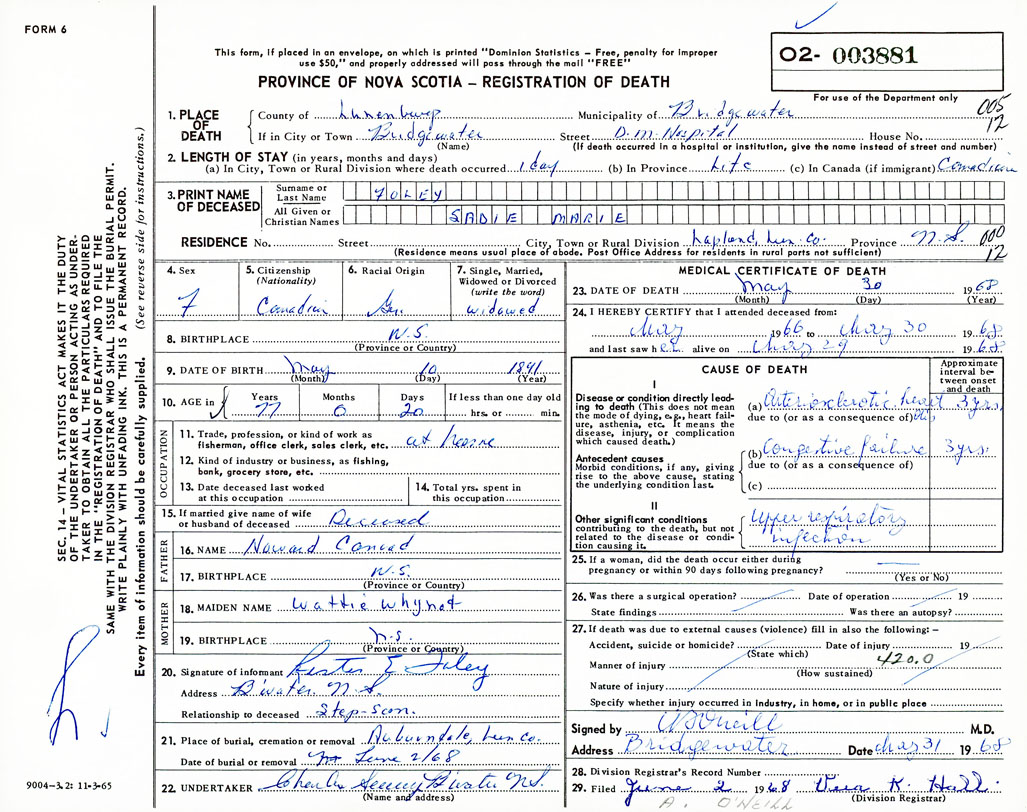 FORM 6
This form, if placed in an envelope, on which is printed "Dominion Statistics – Free, penalty for improper
use $50," and properly addressed will pass through the mail "FREE"
PROVINCE OF NOVA SCOTIA – REGISTRATION OF DEATH
O2- 003881
For use of the Department only
005
12
1. PLACE OF DEATH
County of Lunenburg Municipality of Bridgewater
If in City or Town Bridgewater Street D.M. Hospital House No.
(Name) (If death occurred in a hospital or institution, give the name instead of street and number)
2. LENGTH OF STAY (in years, months and days)
(a) In City, Town or Rural Division where death occurred 1 day (b) In Province Life (c) In Canada (if immigrant) Canadian
3. PRINT NAME OF DECEASED
Surname or Last Name FOLEY
All Given or Christian Names SADIE MARIE
RESIDENCE No. Street City, Town or Rural Division Lapland, Lun. Co. Province N.S.
000
12
(Residence means usual place of abode. Post Office Address for residents in rural parts not sufficient)
4. Sex F
5. Citizenship (Nationality) Canadian
6. Racial Origin Ger
7. Single, Married, Widowed or Divorced (write the word) widowed
8. BIRTHPLACE N.S.
(Province or Country)
9. DATE OF BIRTH May 10 1891
(Month) (Day) (Year)
10. AGE in Years 77 Months 0 Days 20 If less than one day old hrs. or min.
OCCUPATION
11. Trade, profession, or kind of work as fisherman, office clerk, sales clerk, etc. at home
12. Kind of industry or business, as fishing, bank, grocery store, etc.
13. Date deceased last worked at this occupation
14. Total yrs. spent in this occupation
15. If married give name of wife or husband of deceased Deceased
FATHER
16. NAME Howard Conrad
17. BIRTHPLACE N.S.
(Province or Country)
MOTHER
18. MAIDEN NAME Hattie Whynot
19. BIRTHPLACE N.S.
(Province or Country)
20. Signature of informant Lester E Foley
Address B'water N.S.
Relationship to deceased Step-son.
21. Place of burial, cremation or removal Auburndale, Lun Co.
Date of burial or removal June 2/68
22. UNDERTAKER
(Name and address)
MEDICAL CERTIFICATE OF DEATH
23. DATE OF DEATH May 30 1968
(Month) (Day) (Year)
24. I HEREBY CERTIFY that I attended deceased from:
May 1966 to May 30 1968
and last saw her alive on May 29 1968
CAUSE OF DEATH
Approximate interval between onset and death
I
Disease or condition directly leading to death (This does not mean the mode of dying, e.g., heart failure, asthenia, etc. It means the disease, injury, or complication which caused death.)
(a) Arteriosclerotic heart dis 3 yrs.
due to (or as a consequence of)
Antecedent causes
Morbid conditions, if any, giving rise to the above cause, stating the underlying condition last.
(b) Congestive failure 3 yrs.
due to (or as a consequence of)
(c)
II
Other significant conditions contributing to the death, but not related to the disease or condition causing it.
Upper respiratory
infection
25. If a woman, did the death occur either during pregnancy or within 90 days following pregnancy?
(Yes or No)
26. Was there a surgical operation? Date of operation 19
State findings Was there an autopsy?
27. If death was due to external causes (violence) fill in also the following: –
Accident, suicide or homicide? Date of injury 19
(State which)
420.0
Manner of injury
(How sustained)
Nature of injury
Specify whether injury occurred in industry, in home, or in public place
Signed by A B O'Neill M.D.
Address Bridgewater Date May 31 1968
28. Division Registrar's Record Number
29. Filed June 2 1968 Vera K. Hall
(Division Registrar)
A. O'NEILL
SEC. 14 – VITAL STATISTICS ACT MAKES IT THE DUTY
OF THE UNDERTAKER OR PERSON ACTING AS UNDER-
TAKER TO OBTAIN ALL THE PARTICULARS REQUIRED
IN THE "REGISTRATION OF DEATH" AND TO FILE THE
SAME WITH THE DIVISION REGISTRAR WHO SHALL ISSUE THE BURIAL PERMIT.
WRITE PLAINLY WITH UNFADING INK. THIS IS A PERMANENT RECORD.
Every item of information should be carefully supplied. (See reverse side for instructions.)
9004-3.2: 11-3-65